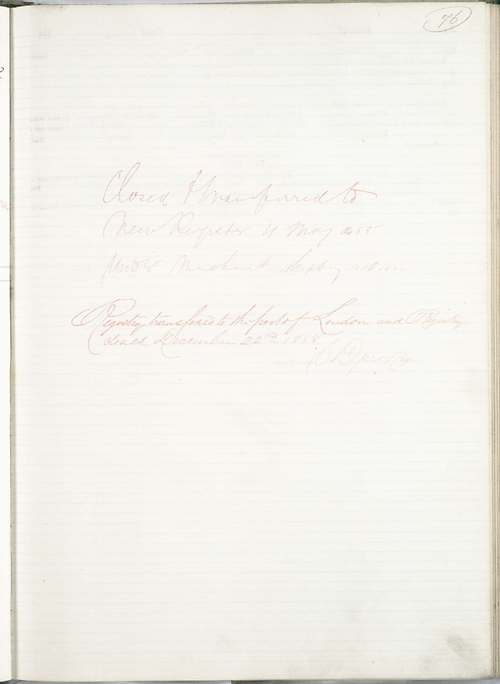 76
Closed & transferred to
New Register 11 May
under Merchant Shipping
Registry transferred to the port of London and Registry
closed December 22nd